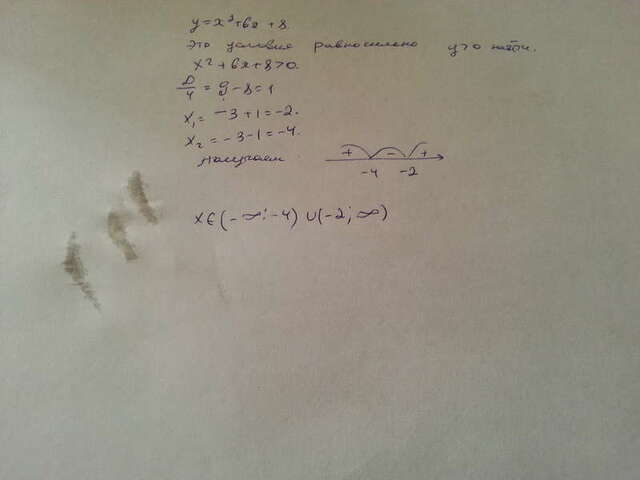 y=x²+6x+8.
Это условие равносильно y>0 найти.
x²+6x+8>0.
D/4 = 9-8=1
x₁=-3+1=-2.
x₂=-3-1=-4.
Получаем:
+ - +
-4 -2
x∈(-∞;-4)∪(-2;∞)